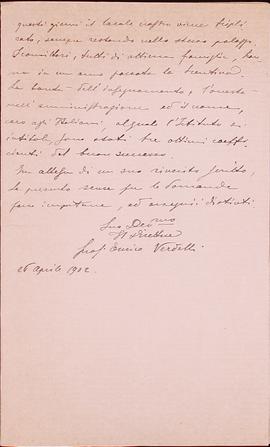 questi giorni il locale nostro viene tripli
cato, sempre restando nello stesso palazzo
tutti di ottime famiglie, han
no in un anno passato la trentina.
La bontà dell'insegnamento, l'onestà
nell'amministrazione ed il nome,
caro agli Italiani, al quale l'Istituto si
intitola, sono stati tre ottimi coeffi
cienti del buon successo.
In attesa di un suo riverito scritto,
le presento scuse per le domande
forse importune, ed ossequi distinti
Suo Dev.mo
Il Direttore
Prof. Enrico Verdelli
26 Aprile 1902.